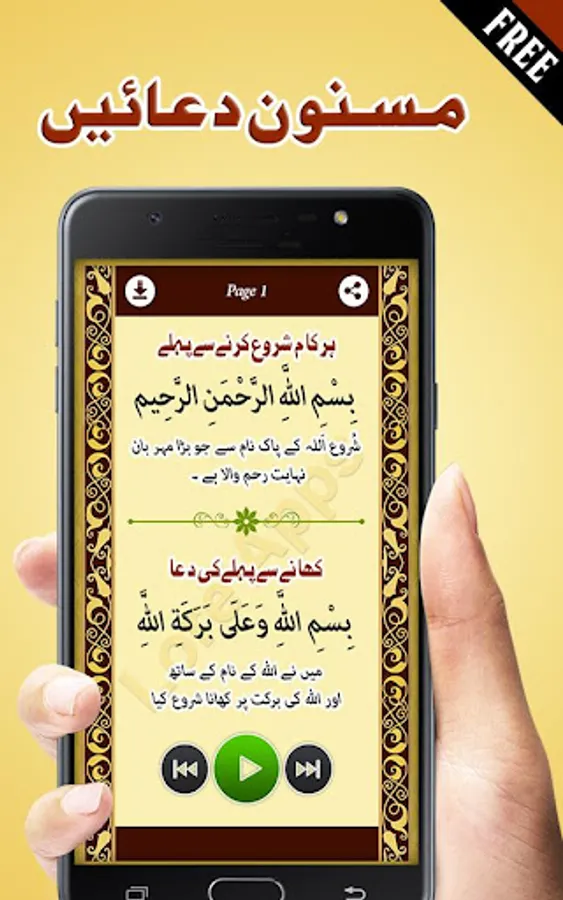 FREE
مسنون دعائیں
Page 1
ہر کام شروع کرنے سے پہلے
بِسْمِ اللَّهِ الرَّحْمَنِ الرَّحِيم
شروع اللہ کے پاک نام سے جو بڑا مہر بان
نہایت رحم والا ہے ۔
کھانے سے پہلے کی دعا
بِسْمِ اللَّهِ وَعَلَى بَرَكَةِ اللَّهِ
میں نے اللہ کے نام کے ساتھ
اور اللہ کی برکت پر کھانا شروع کیا
Love Apps